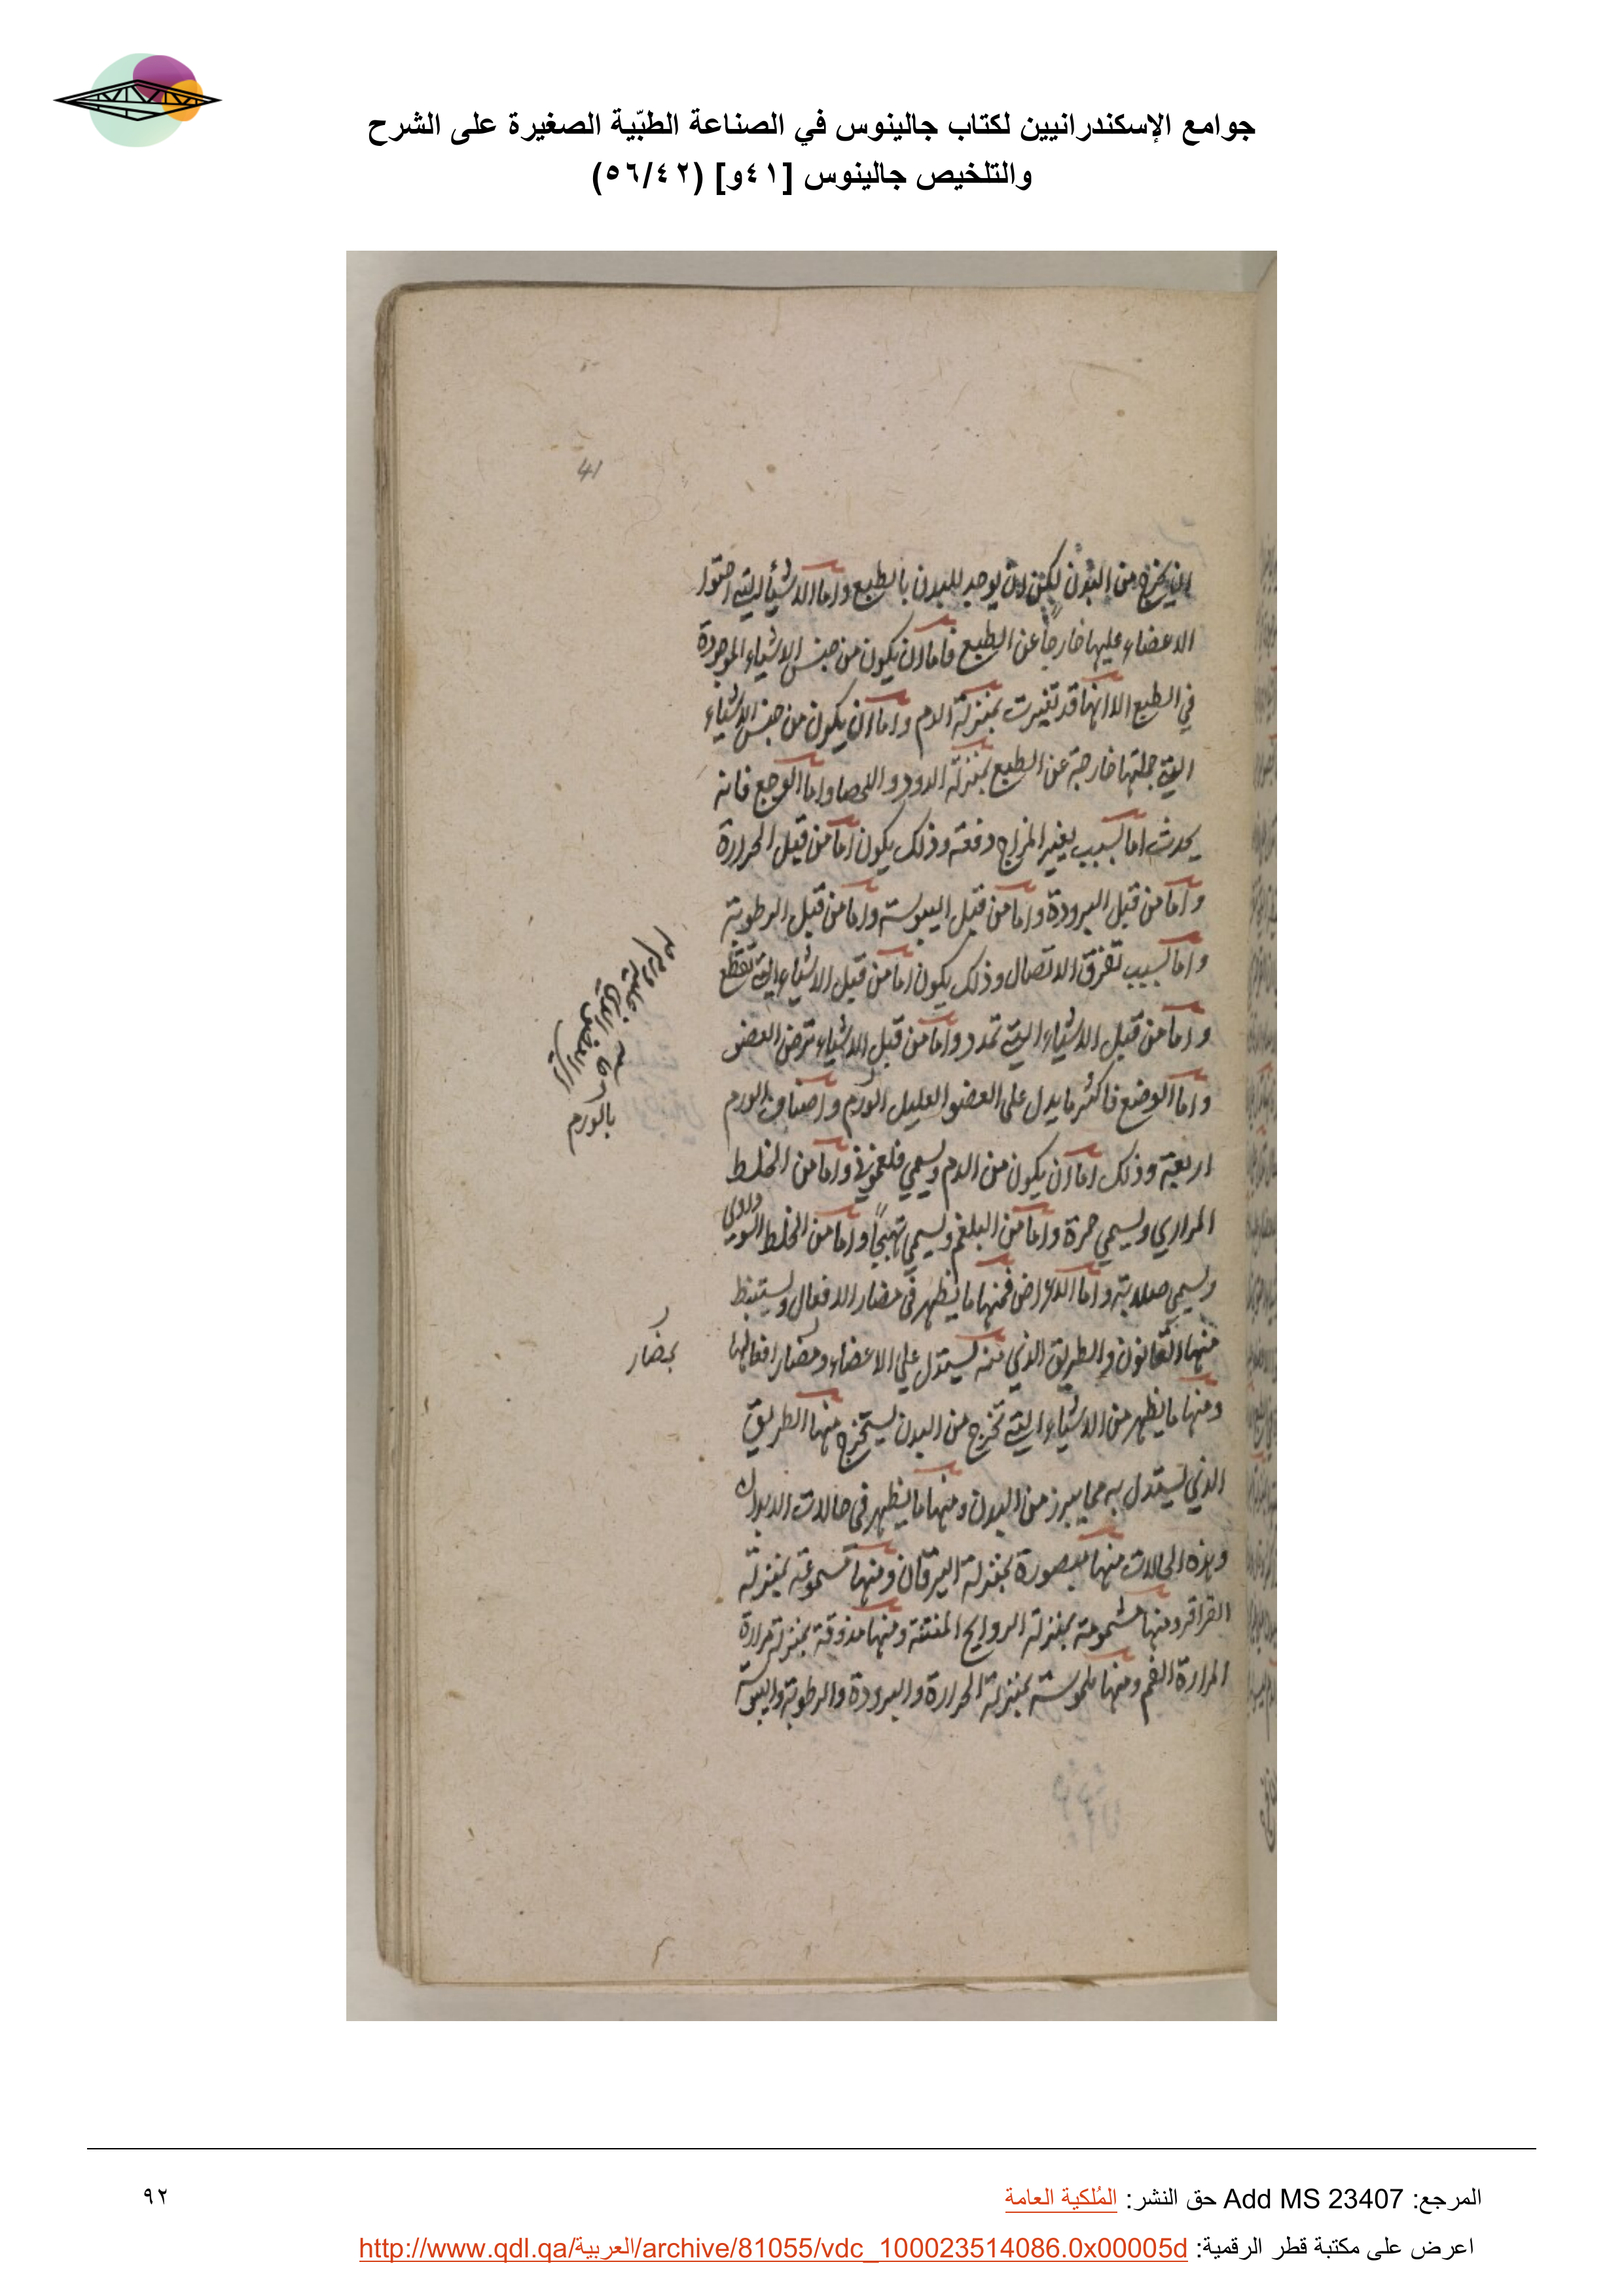 جوامع الإسكندرانيين لكتاب جالينوس في الصناعة الطبّية الصغيرة على الشرح
والتلخيص جالينوس [٤١و] (٥٦/٤٢)
41
من البدن لكن لن يوجد للبدن بالطبع واما الاشياء التي احتوا
الاعضاء عليها خارجاً عن الطبع فاما ان يكون من جنس الاشياء الموجودة
في الطبع الا انها قد تغيرت بمنزلة الدم واما ان يكون من جنس الاشياء
التي جملتها خارجة عن الطبع بمنزلة الدود والحصا واما الوجع فانه
يحدث اما بسبب يغير المزاج دفعة وذلك يكون اما من قبل الحرارة
واما من قبل البرودة واما من قبل اليبوسة واما من قبل الرطوبة
واما بسبب تفرق الاتصال وذلك يكون اما من قبل الاشياء التي تقطع
واما من قبل الاشياء التي تمدد واما من قبل الاشياء ترض العضو
واما الوضع فاكثر ما يدل على العضو العليل الورم واصناف الورم
اربعة وذلك اما ان يكون من الدم ويسمي فلغموني واما من الخلط
المراري ويسمي حمرة واما من البلغم ويسمي تهبجاً واما من الخلط السوداوى
ويسمي صلابة واما الاعراض فمنها ما يظهر في مضار الافعال ويستنبط
منها القانون والطريق الذي منه يستدل علي الاعضاء ومضار افعالها
ومنها ما يظهر من الاشياء التي تخرج من البدن يستخرج منها الطريق
الذي يستدل به مما يبرز من البدن ومنها ما يظهر في حالات الابدان
وهذه الحالات منها مبصورة بمنزلة اليرقان ومنها مسموعة بمنزلة
القراقر ومنها مشمومة بمنزلة الروايح المنتنة ومنها مذوقة بمنزلة مرارة
المرارة الفم ومنها ملموسة بمنزلة الحرارة والبرودة والرطوبة واليبوسة
بالورم
بمضار
المرجع: Add MS 23407 حق النشر: المُلكية العامة
٩٢
اعرض على مكتبة قطر الرقمية: http://www.qdl.qa/العربية/archive/81055/vdc_100023514086.0x00005d